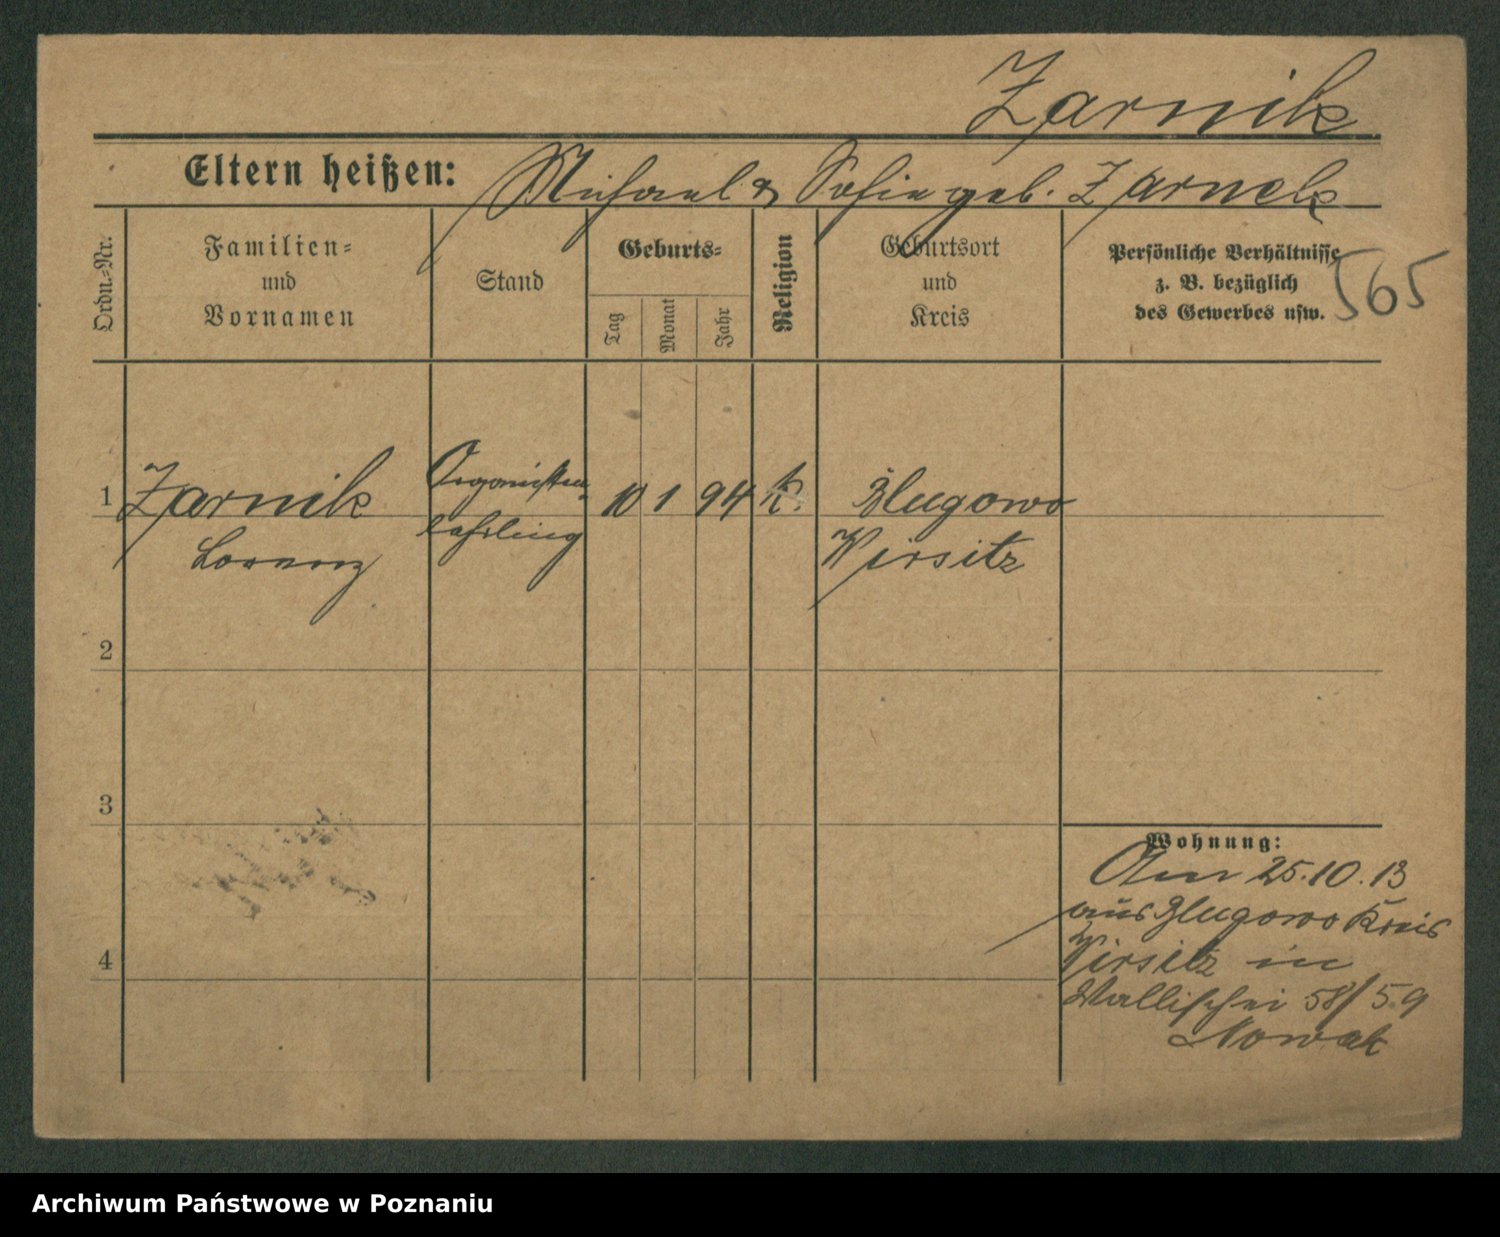 Zarnik
Eltern heißen: Michael & Sofie geb. Zarnek
Ordn.-Nr.
Familien-
und
Vornamen
Stand
Geburts-
Tag
Monat
Jahr
Religion
Geburtsort
und
Kreis
Persönliche Verhältnisse
z. B. bezüglich
des Gewerbes usw.
565
1 Zarnik Organisten- 10 1 94 K. Glugowo
Lorenz lehrling Wirsitz
2
3
Wohnung:
Am 25.10.13
aus Glugowo Kreis
4 Wirsitz in
Wallischei 58/59
Nowak
Archiwum Państwowe w Poznaniu